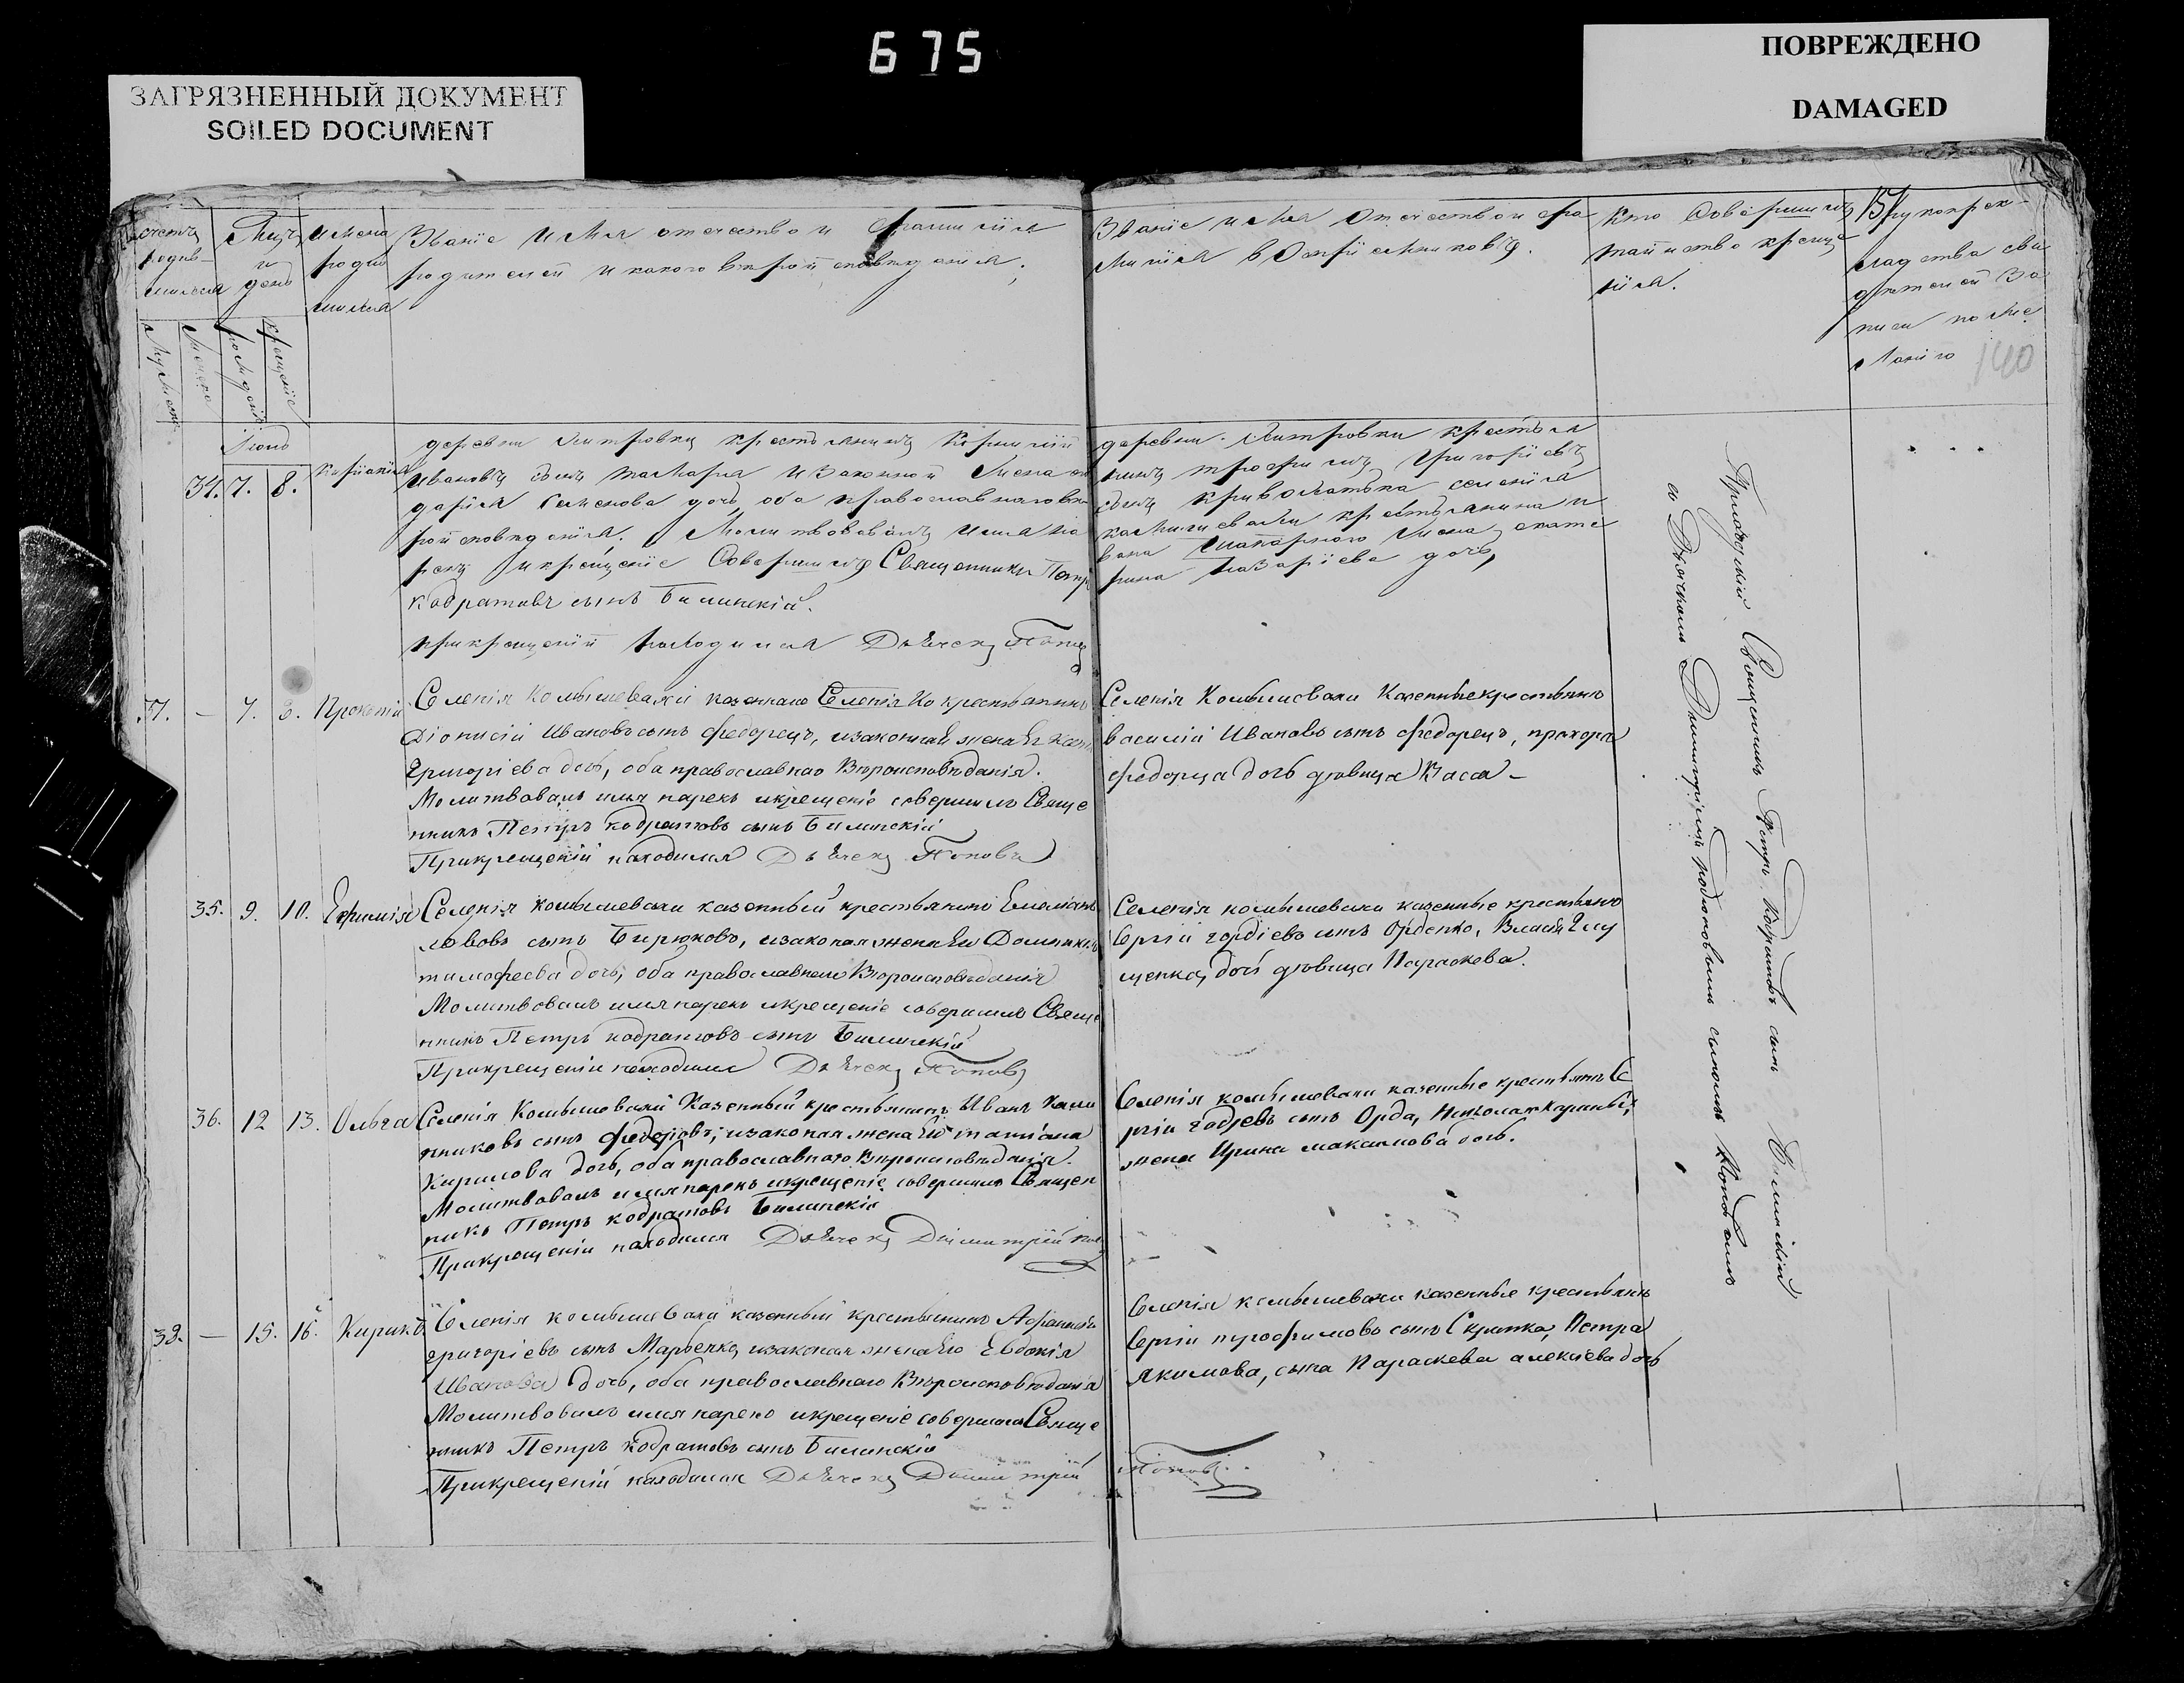 675
ЗАГРЯЗНЕННЫЙ ДОКУМЕНТ
SOILED DOCUMENT
ПОВРЕЖДЕНО
DAMAGED
Счетъ родив- шихся
Мцъ и день
имена родив шихся
Званіе имя отечество и фамилія
родителей и какого вѣроисповѣденія;
Званіе имя отечество и фа
милія воспріемниковъ.
Кто совершилъ
таинство креще
нія.
Рукоприк-
ладства сви
дѣтелей за
писи по же
ланію
140
Июнь
34. 7. 8.
деревни крестьянинъ
Ивановъ сынъ и законная жена
дарія семенова дочь, оба православнаго вѣ
роисповѣденія. Молитвовалъ имя на
рекъ и крещеніе Совершилъ Священникъ Петръ
Кодратовъ сынъ Билинскій.
при крещеніи находился Дьячекъ Поповъ
деревни крестья
нинъ Григоріевъ
сынъ селенія
крестьянина и
вана жена екате
рина назаріева дочь,
37. — 7. 8. Прокопій
Селенія Комышевахи казеннаго Селенія крестьянинъ
Діонисій Ивановъ сынъ федорецъ, и законная жена Ег
Григоріева дочь, оба православнаго Вѣроисповѣданія.
Молитвовалъ имя нарекъ и крещеніе совершилъ Свяще
нникъ Петръ кодратовъ сынъ Билинскій
При крещеніи находился Дьячекъ Поповъ
Селенія Комышевахи Казенные крестьяне
василій Ивановъ сынъ федорецъ, прохора
федорца дочь дѣвица Васса —
35. 9. 10. Ефимія
Селенія комышевахи казенный крестьянинъ Емеліанъ
львовъ сынъ Бирюковъ, и законная жена Его Домникія
тимофеева дочь, оба православнаго Вѣроисповѣданія
Молитвовалъ имя нарекъ и крещеніе совершилъ Свяще
нникъ Петръ кодратовъ сынъ Билинскій
При крещеніи находился Дьячекъ Поповъ
Селенія комышевахи казенные крестьяне
Сергій гордіевъ сынъ Орденко, Власія
щенка, дочь дѣвица Параскева.
36. 12 13. Ольга
Селенія Комышевахи Казенный крестьянинъ Иванъ
никовъ сынъ федоровъ, и законная жена Его татіана
Кирилова дочь, оба православнаго Вѣроисповѣданія.
Молитвовалъ имя нарекъ и крещеніе совершилъ Священ
никъ Петръ кодратовъ Билинскій
При крещеніи находился Дьячекъ Димитрій
Селенія комышевахи казенные крестьяне Се
ргій сынъ Орда, Николая
жена Ирина максимова дочь.
38. — 15. 16. Кирикъ
Селенія комышевахи казенный крестьянинъ
григоріевъ сынъ Марченко, и законная жена Его Евдокія
Иванова дочь, оба православнаго Вѣроисповѣданія
Молитвовалъ имя нарекъ и крещеніе совершилъ Свяще
нникъ Петръ кодратовъ сынъ Билинскій
При крещеніи находился Дьячекъ Димитрій Поповъ
Селенія комышевахи казенные крестьяне
Сергій трофимовъ сынъ Скрипка, Петра
якимова, сына Параскева алексіева дочь
Приходскій Священникъ Петръ Кодратовъ сынъ Билинскій
съ Дьячкомъ сыномъ Поповымъ